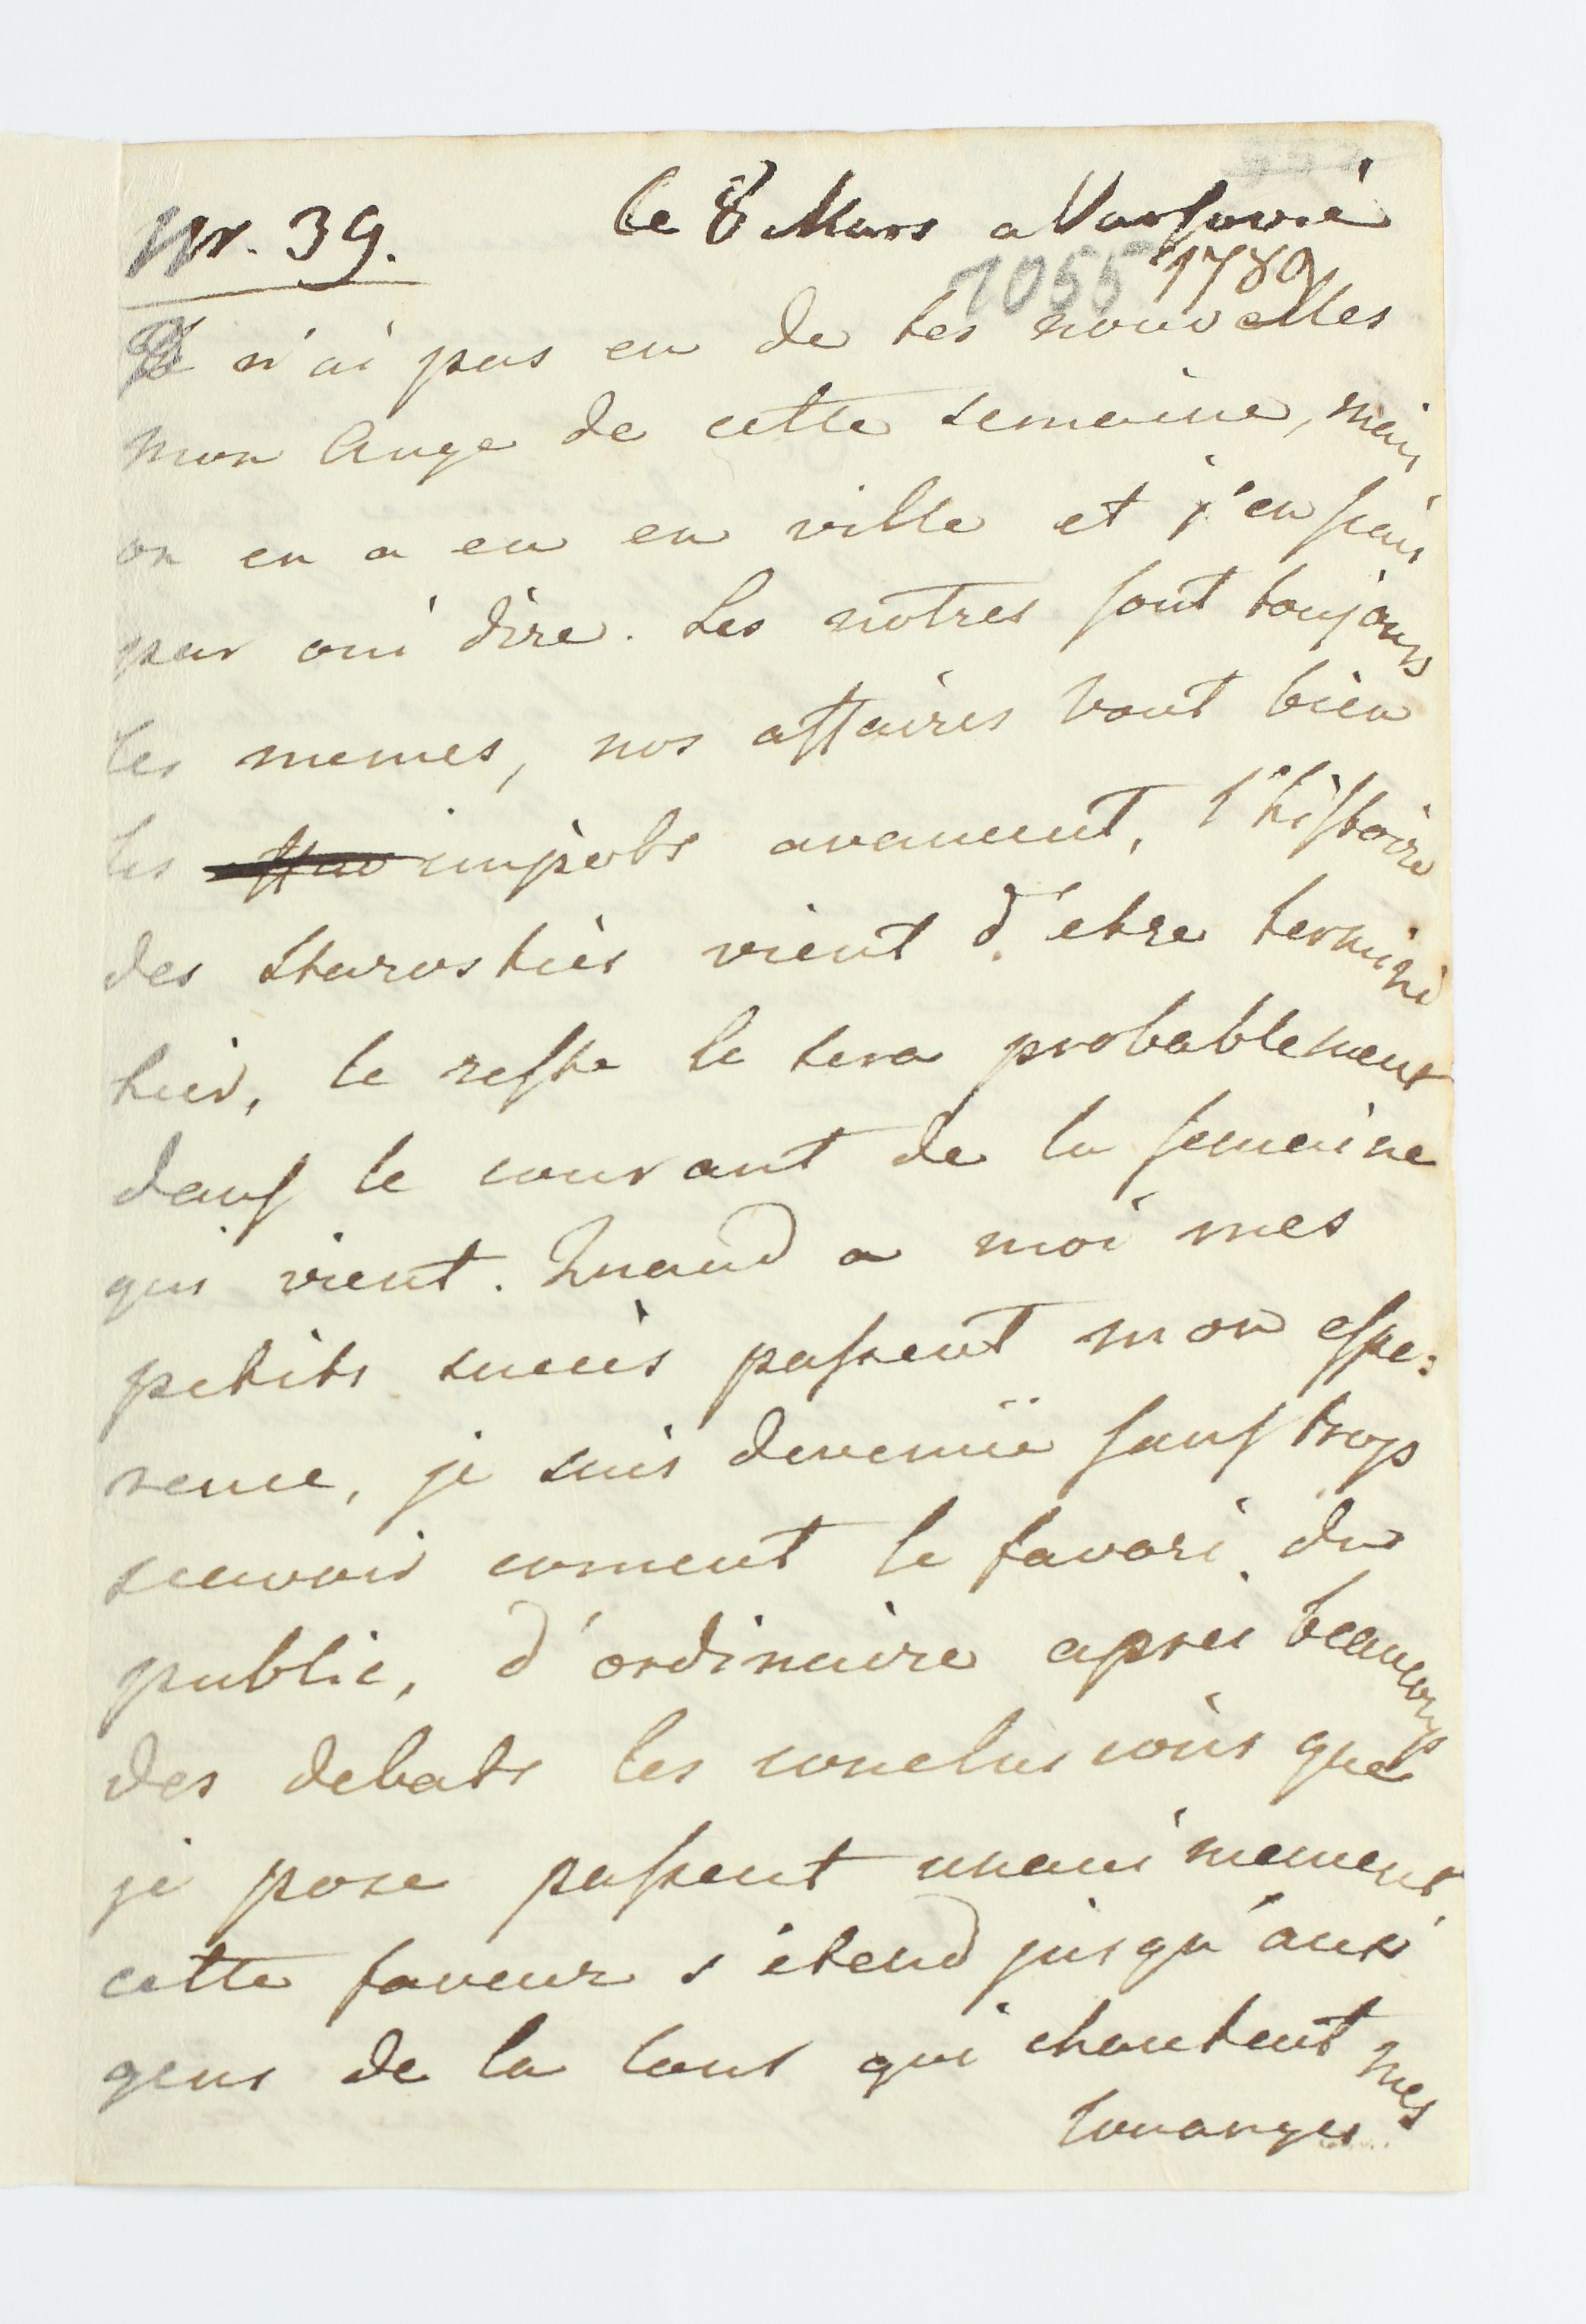 Nr. 39. le 8 Mars a Varsovie
1055 1789
Je n'ai pas eu de tes nouvelles
mon Ange de cette semaine, mais
on en a eu en ville et j'en scais
par oui dire. Les notres sont toujours
les memes, nos affaires vont bien
les impots avancent, l'histoire
des starosties vient d'etre terminé
hier, le reste le sera probablement
dans le courant de la semaine
qui vient. Quand a moi mes
petits succès passent mon espe:
rence, je suis devenuë sans trop
scavoir coment le favori du
public, d'ordinaire apres beaucoup
des debats les conclusions que
je pose passent unanimement
cette faveur s'étend jusqu'aux
gens de la cour qui chantent mes
louanges